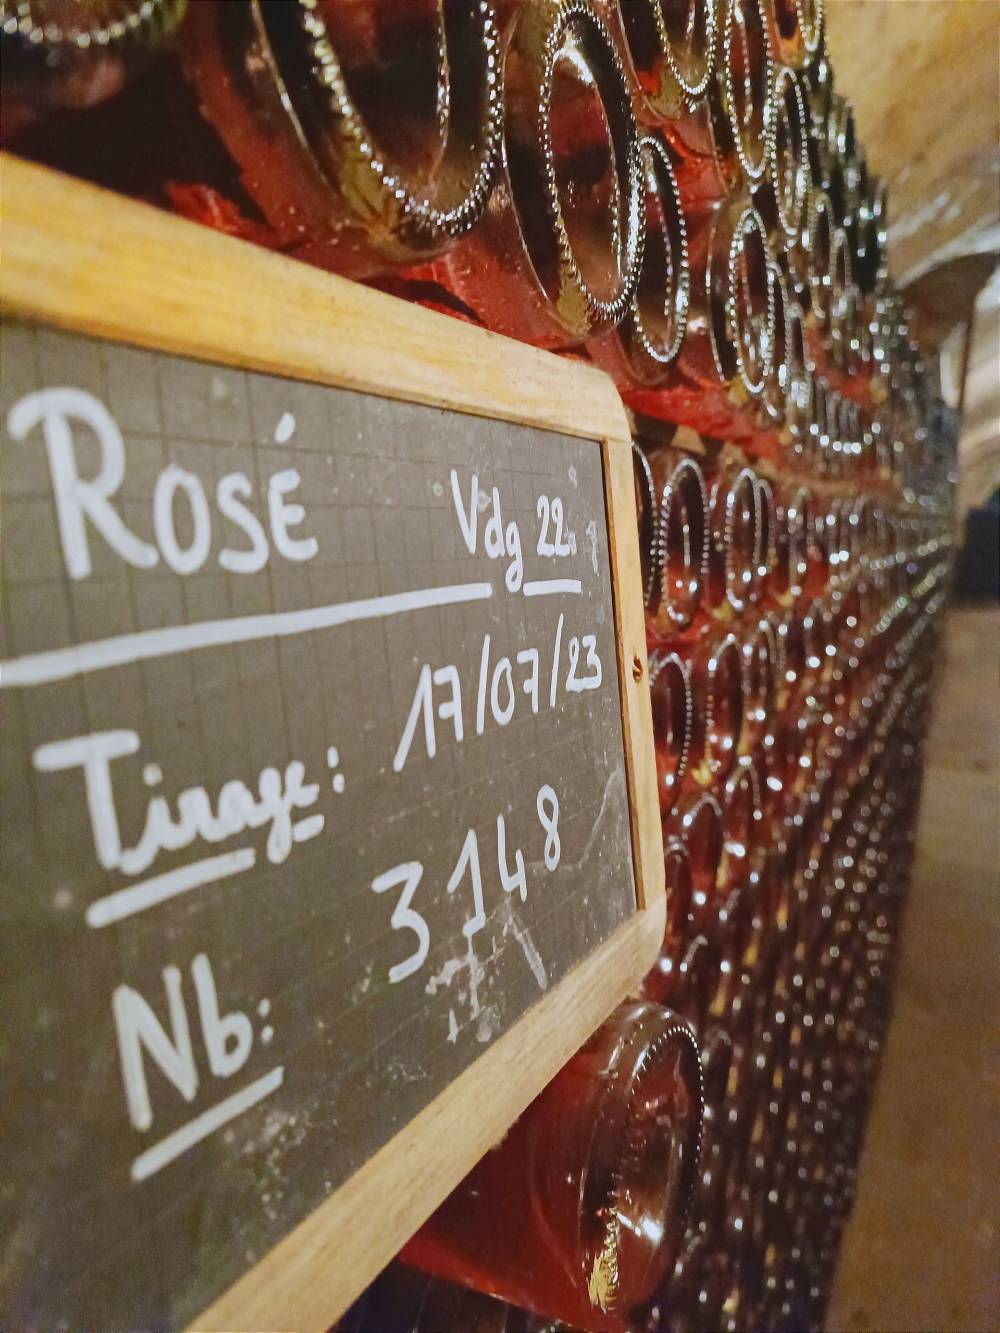 ROSÉ Vdg 22
Tirage: 17/07/23
Nb: 3148